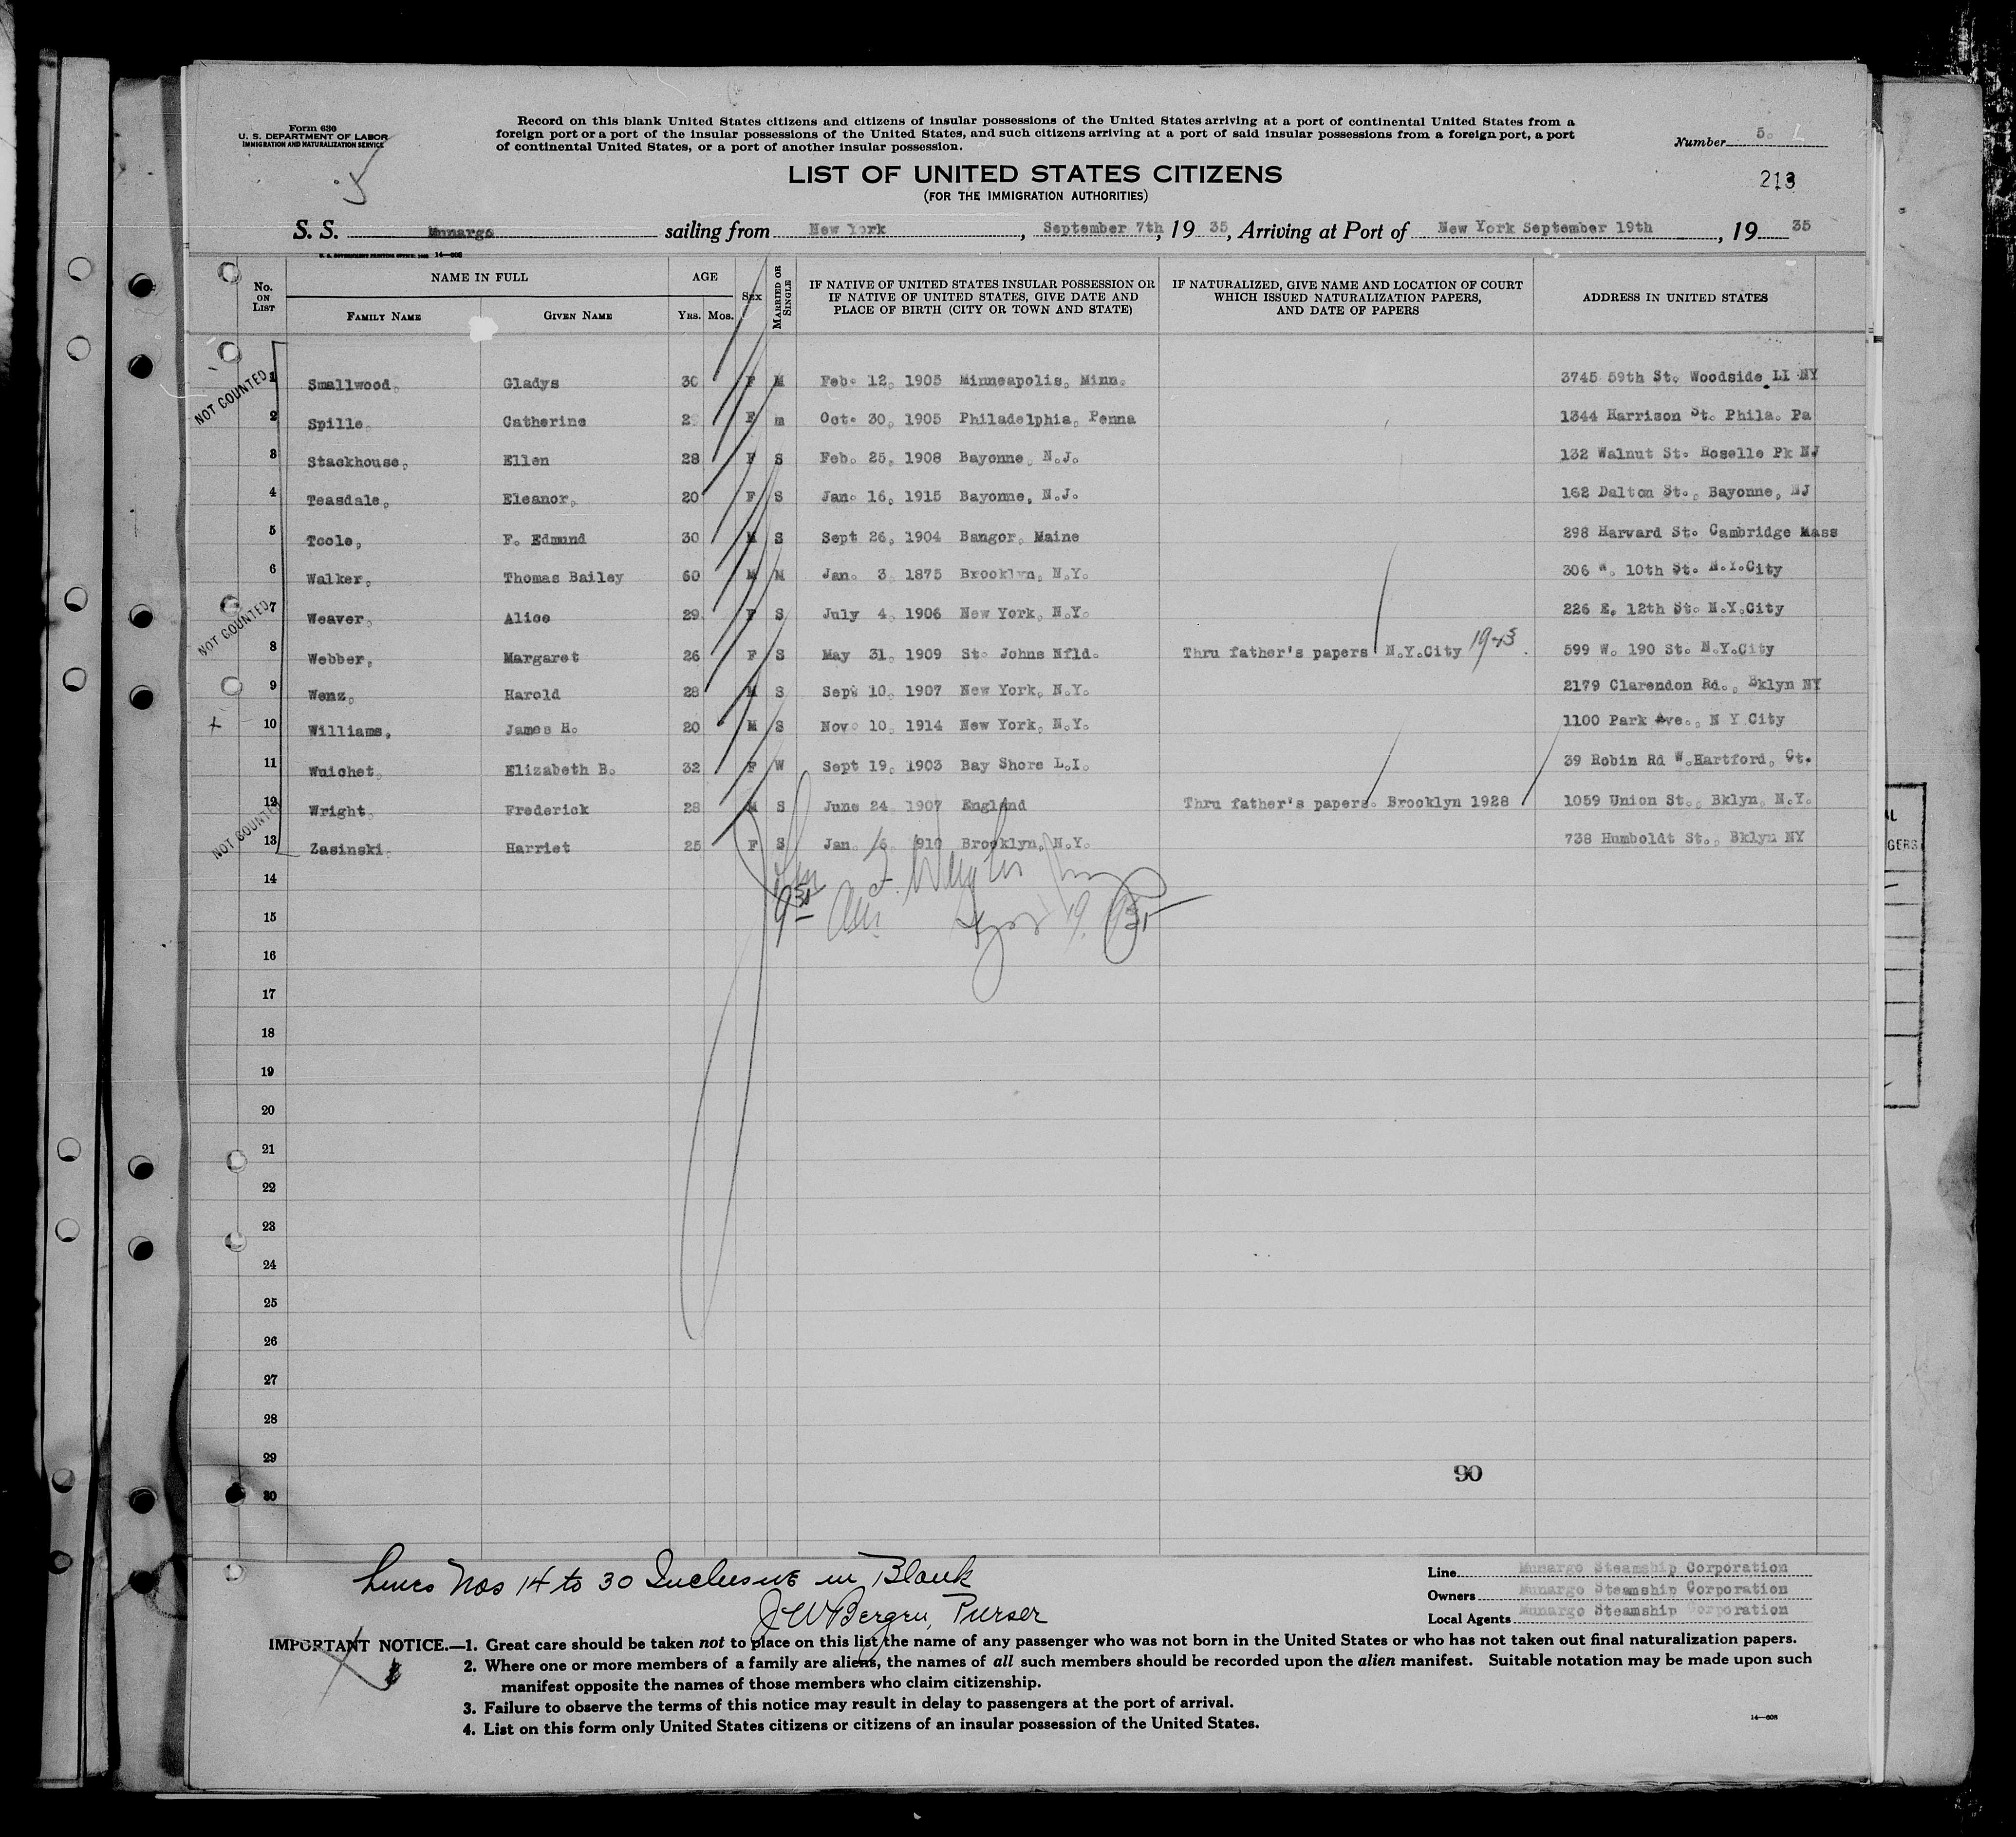 Form 630
U. S. DEPARTMENT OF LABOR
IMMIGRATION AND NATURALIZATION SERVICE
Record on this blank United States citizens and citizens of insular possessions of the United States arriving at a port of continental United States from a
foreign port or a port of the insular possessions of the United States, and such citizens arriving at a port of said insular possessions from a foreign port, a port
of continental United States, or a port of another insular possession.
Number 5.
213
LIST OF UNITED STATES CITIZENS
(FOR THE IMMIGRATION AUTHORITIES)
S. S. Munargo sailing from New York, September 7th, 19 35, Arriving at Port of New York September 19th, 19 35
No. ON LIST NAME IN FULL AGE SEX MARRIED OR SINGLE IF NATIVE OF UNITED STATES INSULAR POSSESSION OR IF NATIVE OF UNITED STATES, GIVE DATE AND PLACE OF BIRTH (CITY OR TOWN AND STATE) IF NATURALIZED, GIVE NAME AND LOCATION OF COURT WHICH ISSUED NATURALIZATION PAPERS, AND DATE OF PAPERS ADDRESS IN UNITED STATES
FAMILY NAME GIVEN NAME YRS. MOS.
NOT COUNTED
1 Smallwood, Gladys 30 F M Feb. 12, 1905 Minneapolis, Minn. 3745 59th St. Woodside LI NY
2 Spille, Catherine F m Oct. 30, 1905 Philadelphia, Penna 1344 Harrison St. Phila. Pa
3 Stackhouse, Ellen 28 F S Feb. 25, 1908 Bayonne, N.J. 132 Walnut St. Roselle Pk NJ
4 Teasdale, Eleanor, 20 F S Jan. 16, 1915 Bayonne, N.J. 162 Dalton St., Bayonne, NJ
5 Toole, F. Edmund 30 M S Sept 26, 1904 Bangor, Maine 298 Harvard St. Cambridge Mass
6 Walker, Thomas Bailey 60 M M Jan. 3, 1875 Brooklyn, N.Y. 306 W. 10th St. N.Y.City
NOT COUNTED
7 Weaver, Alice 29 F S July 4, 1906 New York, N.Y. 226 E. 12th St. N.Y.City
8 Webber, Margaret 26 F S May 31, 1909 St. Johns Nfld. Thru father's papers N.Y.City 599 W. 190 St. N.Y.City
9 Wenz, Harold 28 M S Sept 10, 1907 New York, N.Y. 2179 Clarendon Rd., Bklyn NY
10 Williams, James H. 20 M S Nov. 10, 1914 New York, N.Y. 1100 Park Ave., N Y City
11 Wuichet, Elizabeth B. 32 F W Sept 19, 1903 Bay Shore L.I. 39 Robin Rd W.Hartford, Ct.
12 Wright, Frederick 28 M S June 24, 1907 England Thru father's papers. Brooklyn 1928 1059 Union St., Bklyn, N.Y.
NOT COUNTED
13 Zasinski, Harriet 25 F S Jan. Brooklyn, N.Y. 738 Humboldt St., Bklyn NY
14
15
16
17
18
19
20
21
22
23
24
25
26
27
28
29
30
90
Lines Nos 14 to 30 Inclusive in Blank
J W Bergen, Purser
Line Munargo Steamship Corporation
Owners Munargo Steamship Corporation
Local Agents Munargo Steamship Corporation
IMPORTANT NOTICE.—1. Great care should be taken not to place on this list the name of any passenger who was not born in the United States or who has not taken out final naturalization papers.
2. Where one or more members of a family are aliens, the names of all such members should be recorded upon the alien manifest. Suitable notation may be made upon such
manifest opposite the names of those members who claim citizenship.
3. Failure to observe the terms of this notice may result in delay to passengers at the port of arrival.
4. List on this form only United States citizens or citizens of an insular possession of the United States.
14—608